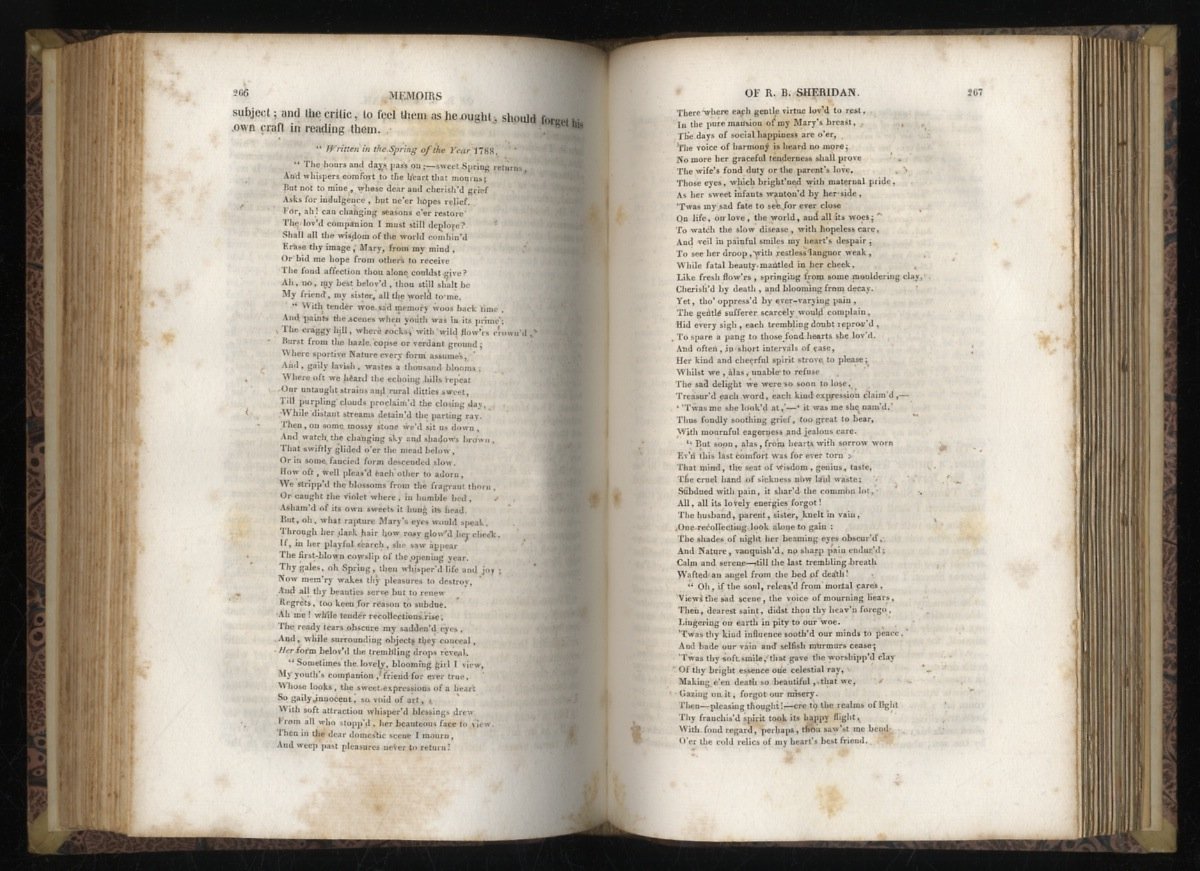 266
MEMOIRS
subject ; and the critic, to feel them as he ought, should forget his
own craft in reading them.
“ Written in the Spring of the Year 1788.
“ The hours and days pass on ;—sweet Spring returns,
And whispers comfort to the heart that mourns ;
But not to mine, whose dear and cherish'd grief
Asks for indulgence, but ne'er hopes relief.
For, ah ! can changing seasons e'er restore
The lov'd companion I must still deplore ?
Shall all the wisdom of the world combin'd
Erase thy image, Mary, from my mind,
Or bid me hope from others to receive
The fond affection thou alone couldst give ?
Ah, no, my best belov'd, thou still shalt be
My friend, my sister, all the world to me.
“ With tender woe sad memory woos back time,
And paints the scenes when youth was in its prime ;
The craggy hill, where rocks, with wild flow'rs crown'd,
Burst from the hazle copse or verdant ground ;
Where sportive Nature every form assumes,
And, gaily lavish, wastes a thousand blooms ;
Where oft we heard the echoing hills repeat
Our untaught strains and rural ditties sweet,
Till purpling clouds proclaim'd the closing day,
While distant streams detain'd the parting ray.
Then, on some mossy stone we'd sit us down,
And watch the changing sky and shadows brown,
That swiftly glided o'er the mead below,
Or in some fancied form descended slow.
How oft, well pleas'd each other to adorn,
We stripp'd the blossoms from the fragrant thorn,
Or caught the violet where, in humble bed,
Asham'd of its own sweets it hung its head.
But, oh, what rapture Mary's eyes would speak,
Through her dark hair how rosy glow'd her cheek,
If, in her playful search, she saw appear
The first-blown cowslip of the opening year.
Thy gales, oh Spring, then whisper'd life and joy ;
Now mem'ry wakes thy pleasures to destroy,
And all thy beauties serve but to renew
Regrets, too keen for reason to subdue.
Ah me ! while tender recollections rise,
The ready tears obscure my sadden'd eyes,
And, while surrounding objects they conceal,
Her form belov'd the trembling drops reveal.
“ Sometimes the lovely, blooming girl I view,
My youth's companion, friend for ever true,
Whose looks, the sweet expressions of a heart
So gaily innocent, so void of art,
With soft attraction whisper'd blessings drew
From all who stopp'd, her beauteous face to view.
Then in the dear domestic scene I mourn,
And weep past pleasures never to return !
OF R. B. SHERIDAN.
267
There where each gentle virtue lov'd to rest,
In the pure mansion of my Mary's breast,
The days of social happiness are o'er,
The voice of harmony is heard no more ;
No more her graceful tenderness shall prove
The wife's fond duty or the parent's love.
Those eyes, which bright'ned with maternal pride,
As her sweet infants wanton'd by her side,
'Twas my sad fate to see for ever close
On life, on love, the world, and all its woes ;
To watch the slow disease, with hopeless care,
And veil in painful smiles my heart's despair ;
To see her droop, with restless languor weak,
While fatal beauty mantled in her cheek,
Like fresh flow'rs, springing from some mouldering clay,
Cherish'd by death, and blooming from decay.
Yet, tho' oppress'd by ever-varying pain,
The gentle sufferer scarcely would complain,
Hid every sigh, each trembling doubt reprov'd,
To spare a pang to those fond hearts she lov'd.
And often, in short intervals of ease,
Her kind and cheerful spirit strove to please ;
Whilst we, alas, unable to refuse
The sad delight we were so soon to lose,
Treasur'd each word, each kind expression claim'd,—
‘ 'Twas me she look'd at,’—‘ it was me she nam'd.’
Thus fondly soothing grief, too great to bear,
With mournful eagerness and jealous care.
“ But soon, alas, from hearts with sorrow worn
Ev'd this last comfort was for ever torn :
That mind, the seat of wisdom, genius, taste,
The cruel hand of sickness now laid waste ;
Subdued with pain, it shar'd the common lot,
All, all its lovely energies forgot !
The husband, parent, sister, knelt in vain,
One recollecting look alone to gain :
The shades of night her beaming eyes obscur'd,
And Nature, vanquish'd, no sharp pain endur'd ;
Calm and serene—till the last trembling breath
Wafted an angel from the bed of death !
“ Oh, if the soul, releas'd from mortal cares,
Views the sad scene, the voice of mourning hears,
Then, dearest saint, didst thou thy heav'n forego,
Lingering on earth in pity to our woe.
'Twas thy kind influence sooth'd our minds to peace,
And bade our vain and selfish murmurs cease ;
'Twas thy soft smile, that gave the worshipp'd clay
Of thy bright essence one celestial ray,
Making e'en death so beautiful, that we,
Gazing on it, forgot our misery.
Then—pleasing thought !—ere to the realms of light
Thy franchis'd spirit took its happy flight,
With fond regard, perhaps, thou saw'st me bend
O'er the cold relics of my heart's best friend.